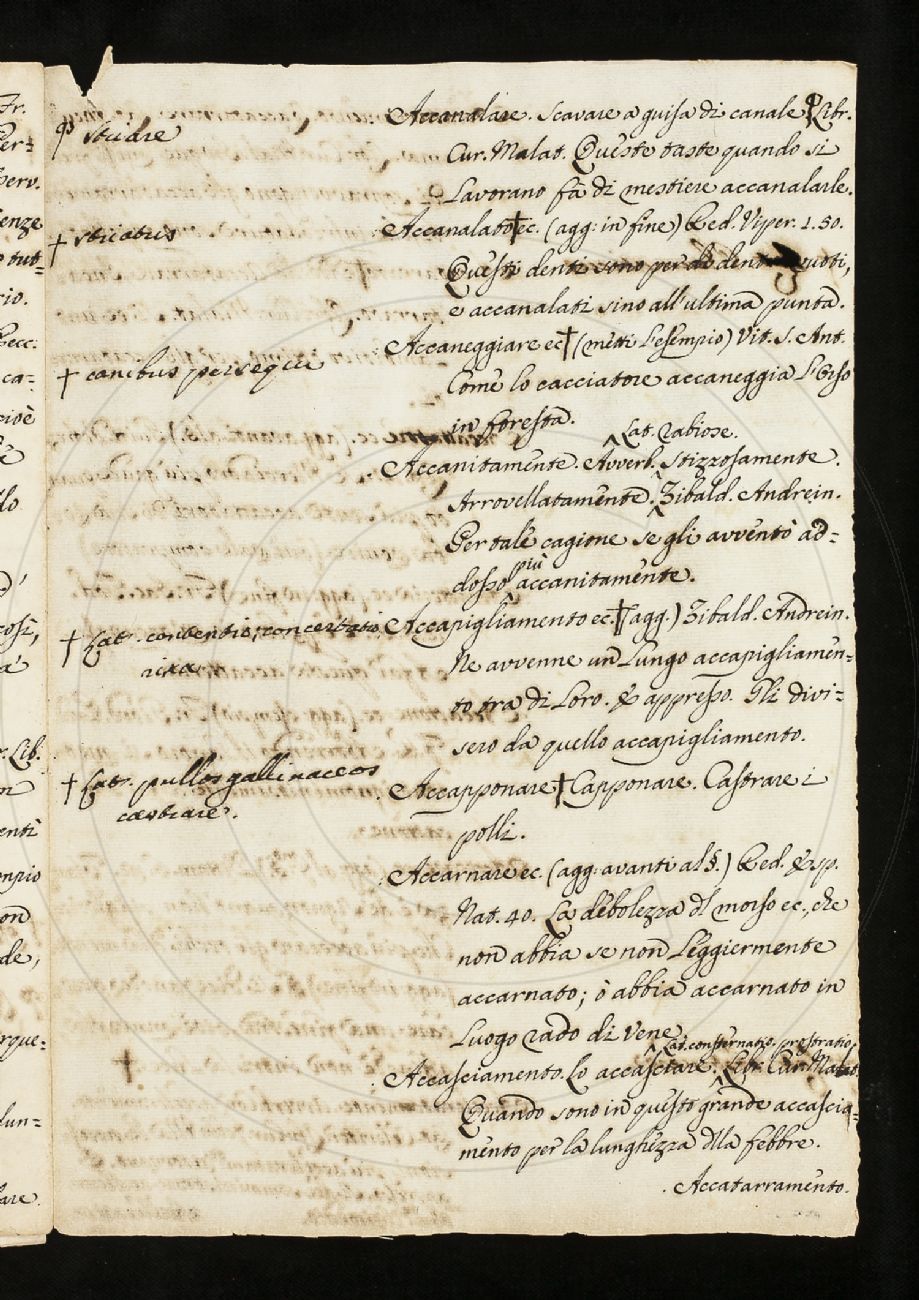 Accanalare. Scavare a guisa di canale φ Libr.
φ striare
Cur. Malat. Queste taste quando si
Lavorano fa di mestiere accanalarle.
Accanalato † ec. (agg: in fine) Red. Viper. 1. 50.
† striatus
Questi denti sono per di dentro vuoti,
e accanalati sino all'ultima punta.
Accaneggiare ec † (metti L'esempio) Vit. S. Ant.
† canibus persequi
Come lo cacciatore accaneggia L'Orso
in foresta.
Lat. rabiose.
Accanitamente. Avverb. Stizzosamente.
Arrovellatamente. Zibald. Andrein.
Per tale cagione se gli avventò ad=
dosso più accanitamente.
Accapigliamento ec. † (agg.) Zibald. Andrein.
† Lat. contentio, concertatio
rixa
Ne avvenne un Lungo accapigliamen=
to tra di Loro. & appresso. Gli divi=
sero da quello accapigliamento.
Accapponare † Capponare. Castrare i
† Lat. pullos gallinaceos
castrare.
polli.
Accarnare ec. (agg: avanti al §.) Red. Esp.
Nat. 40. La debolezza dl morso ec., che
non abbia se non Leggiermente
accarnato; ò abbia accarnato in
Luogo rado di vene
†
Lat. consternatio. prostratio
Accasciamento. Lo accasciare. Libr. Cur. Malat.
Quando sono in questo grande accascia=
mento per la lunghezza dlla febbre.
Accatarramento.